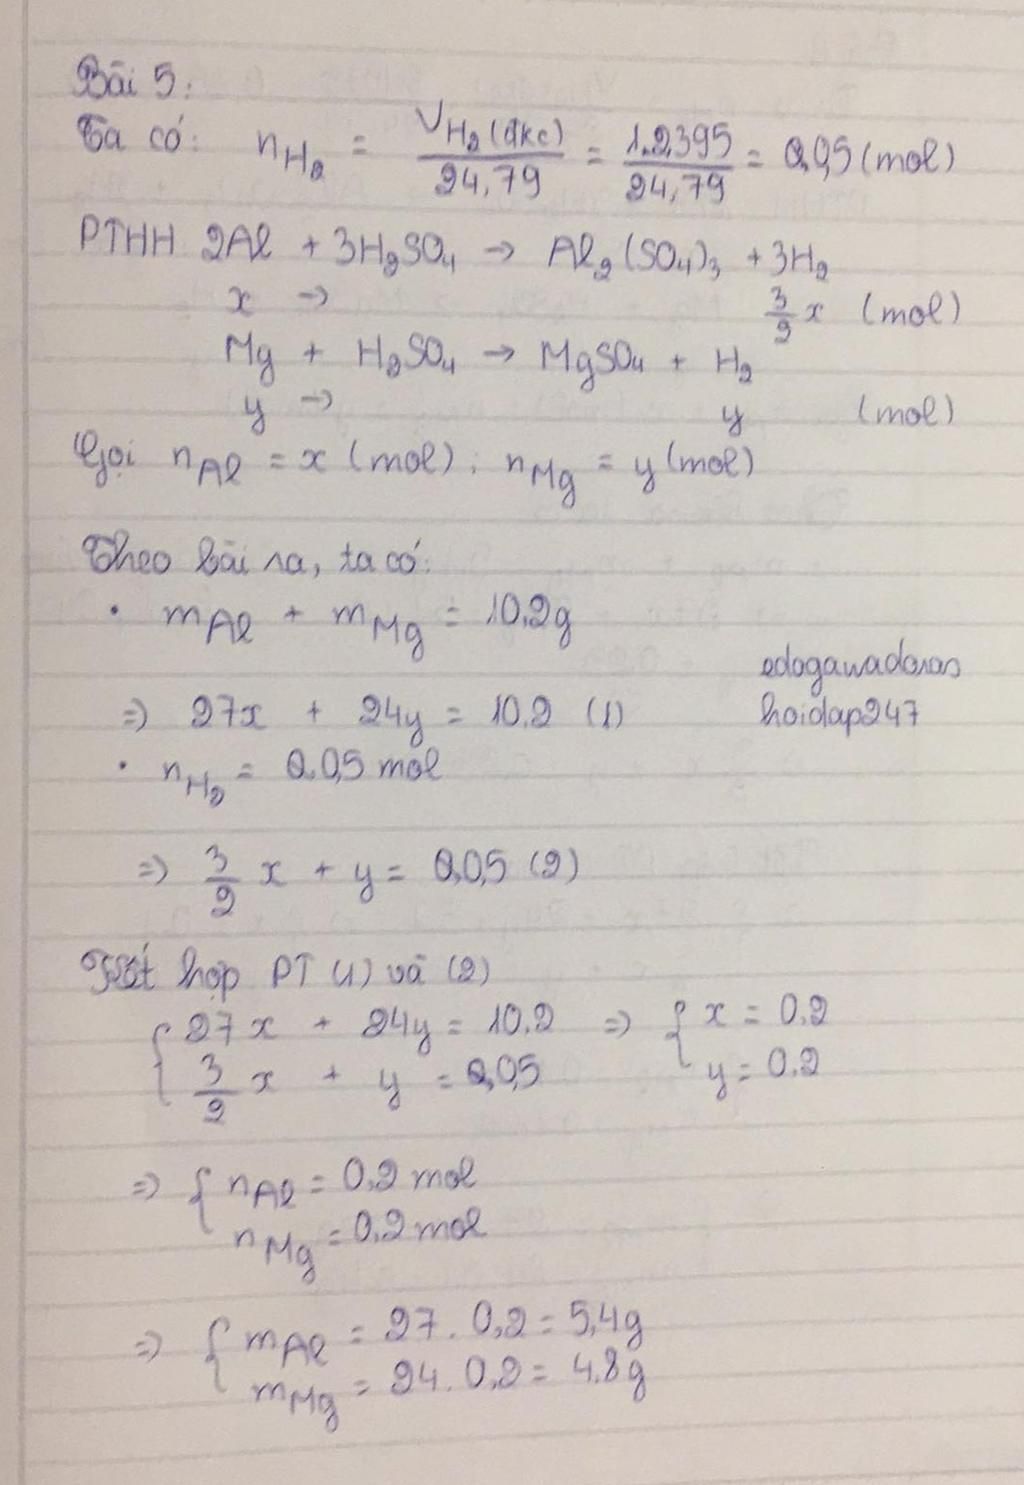 Bài 5:
Ta có: nH₂ = VH₂(đkc)/24,79 = 1,2395/24,79 = 0,05 (mol)
PTHH 2Al + 3H₂SO₄ → Al₂(SO₄)₃ + 3H₂
x → 3/2 x (mol)
Mg + H₂SO₄ → MgSO₄ + H₂
y → y (mol)
Gọi nAl = x (mol); nMg = y (mol)
Theo bài ra, ta có:
• mAl + mMg = 10,2g
⇒ 27x + 24y = 10,2 (1)
edogawadoras
hoidap247
• nH₂ = 0,05 mol
⇒ 3/2 x + y = 0,05 (2)
Kết hợp PT (1) và (2)
{ 27x + 24y = 10,2 ⇒ { x = 0,2
3/2 x + y = 0,05 y = 0,2
⇒ { nAl = 0,2 mol
nMg = 0,2 mol
⇒ { mAl = 27 . 0,2 = 5,4g
mMg = 24 . 0,2 = 4,8g